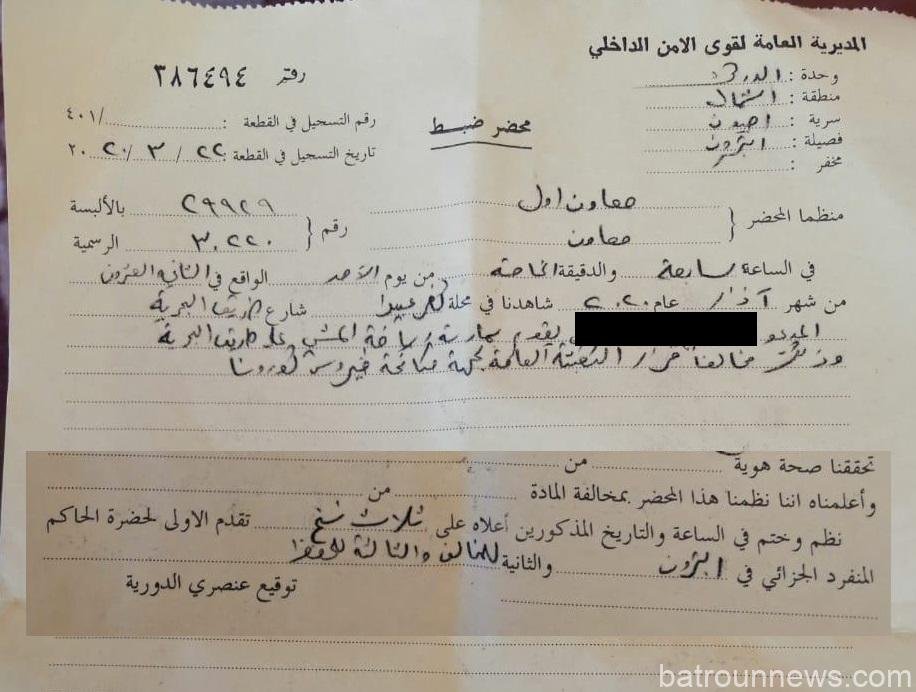 المديرية العامة لقوى الامن الداخلي
وحدة : الدرك
منطقة : الشمال
سرية : اميون
فصيلة : البترون
مخفر :
رقم ٣٨٦٤٩٤
رقم التسجيل في القطعة : /٤٠١
تاريخ التسجيل في القطعة : ٢٢ / ٣ / ٢٠٢٠
محضر ضبط
منظما المحضر { معاون اول } رقم { ٢٩٩٢٩ بالألبسة
معاون ٣٠٢٢٠ الرسمية
في الساعة سابعة والدقيقة الخامسة من يوم الأحد الواقع في الثاني والعشرون
من شهر آذار عام ٢٠٢٠ شاهدنا في محلة كفرعبيدا شارع طريق البحرية
المدعو يقوم بممارسة رياضة المشي على طريق البحرية
وذلك مخالفا قرار التعبئة العامة لجهة مكافحة فيروس كورونا
تحققنا صحة هوية من
وأعلمناه اننا نظمنا هذا المحضر بمخالفة المادة من
نظم وختم في الساعة والتاريخ المذكورين أعلاه على ثلاث نسخ تقدم الاولى لحضرة الحاكم
المنفرد الجزائي في البترون والثانية للمخالف والثالثة للحفظ
توقيع عنصري الدورية
batrounnews.com